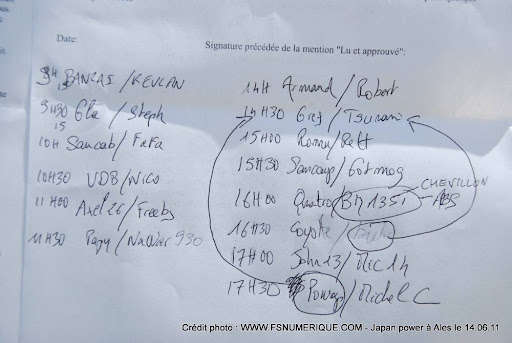 Date:
Signature précédée de la mention "Lu et approuvé":
9H BANZAI / KEVLAN
9H30 Gla / Steph
15
10H Sancab / FaFa
15
10H30 VDB / Nico
11H00 Axel26 / Freeby
11H30 Papy / 930
14H Armand / Robert
14H30 Grf / Tsunami
15H00 Romu / Rett
15H30 / Gotmog
16H00 Quatro / BM 135I CHEVILLON ABS
16H30 Coyote /
17H00 John13 / Mic14
17H30 / Michel C
Crédit photo : WWW.FSNUMERIQUE.COM - Japan power à Ales le 14.06.11